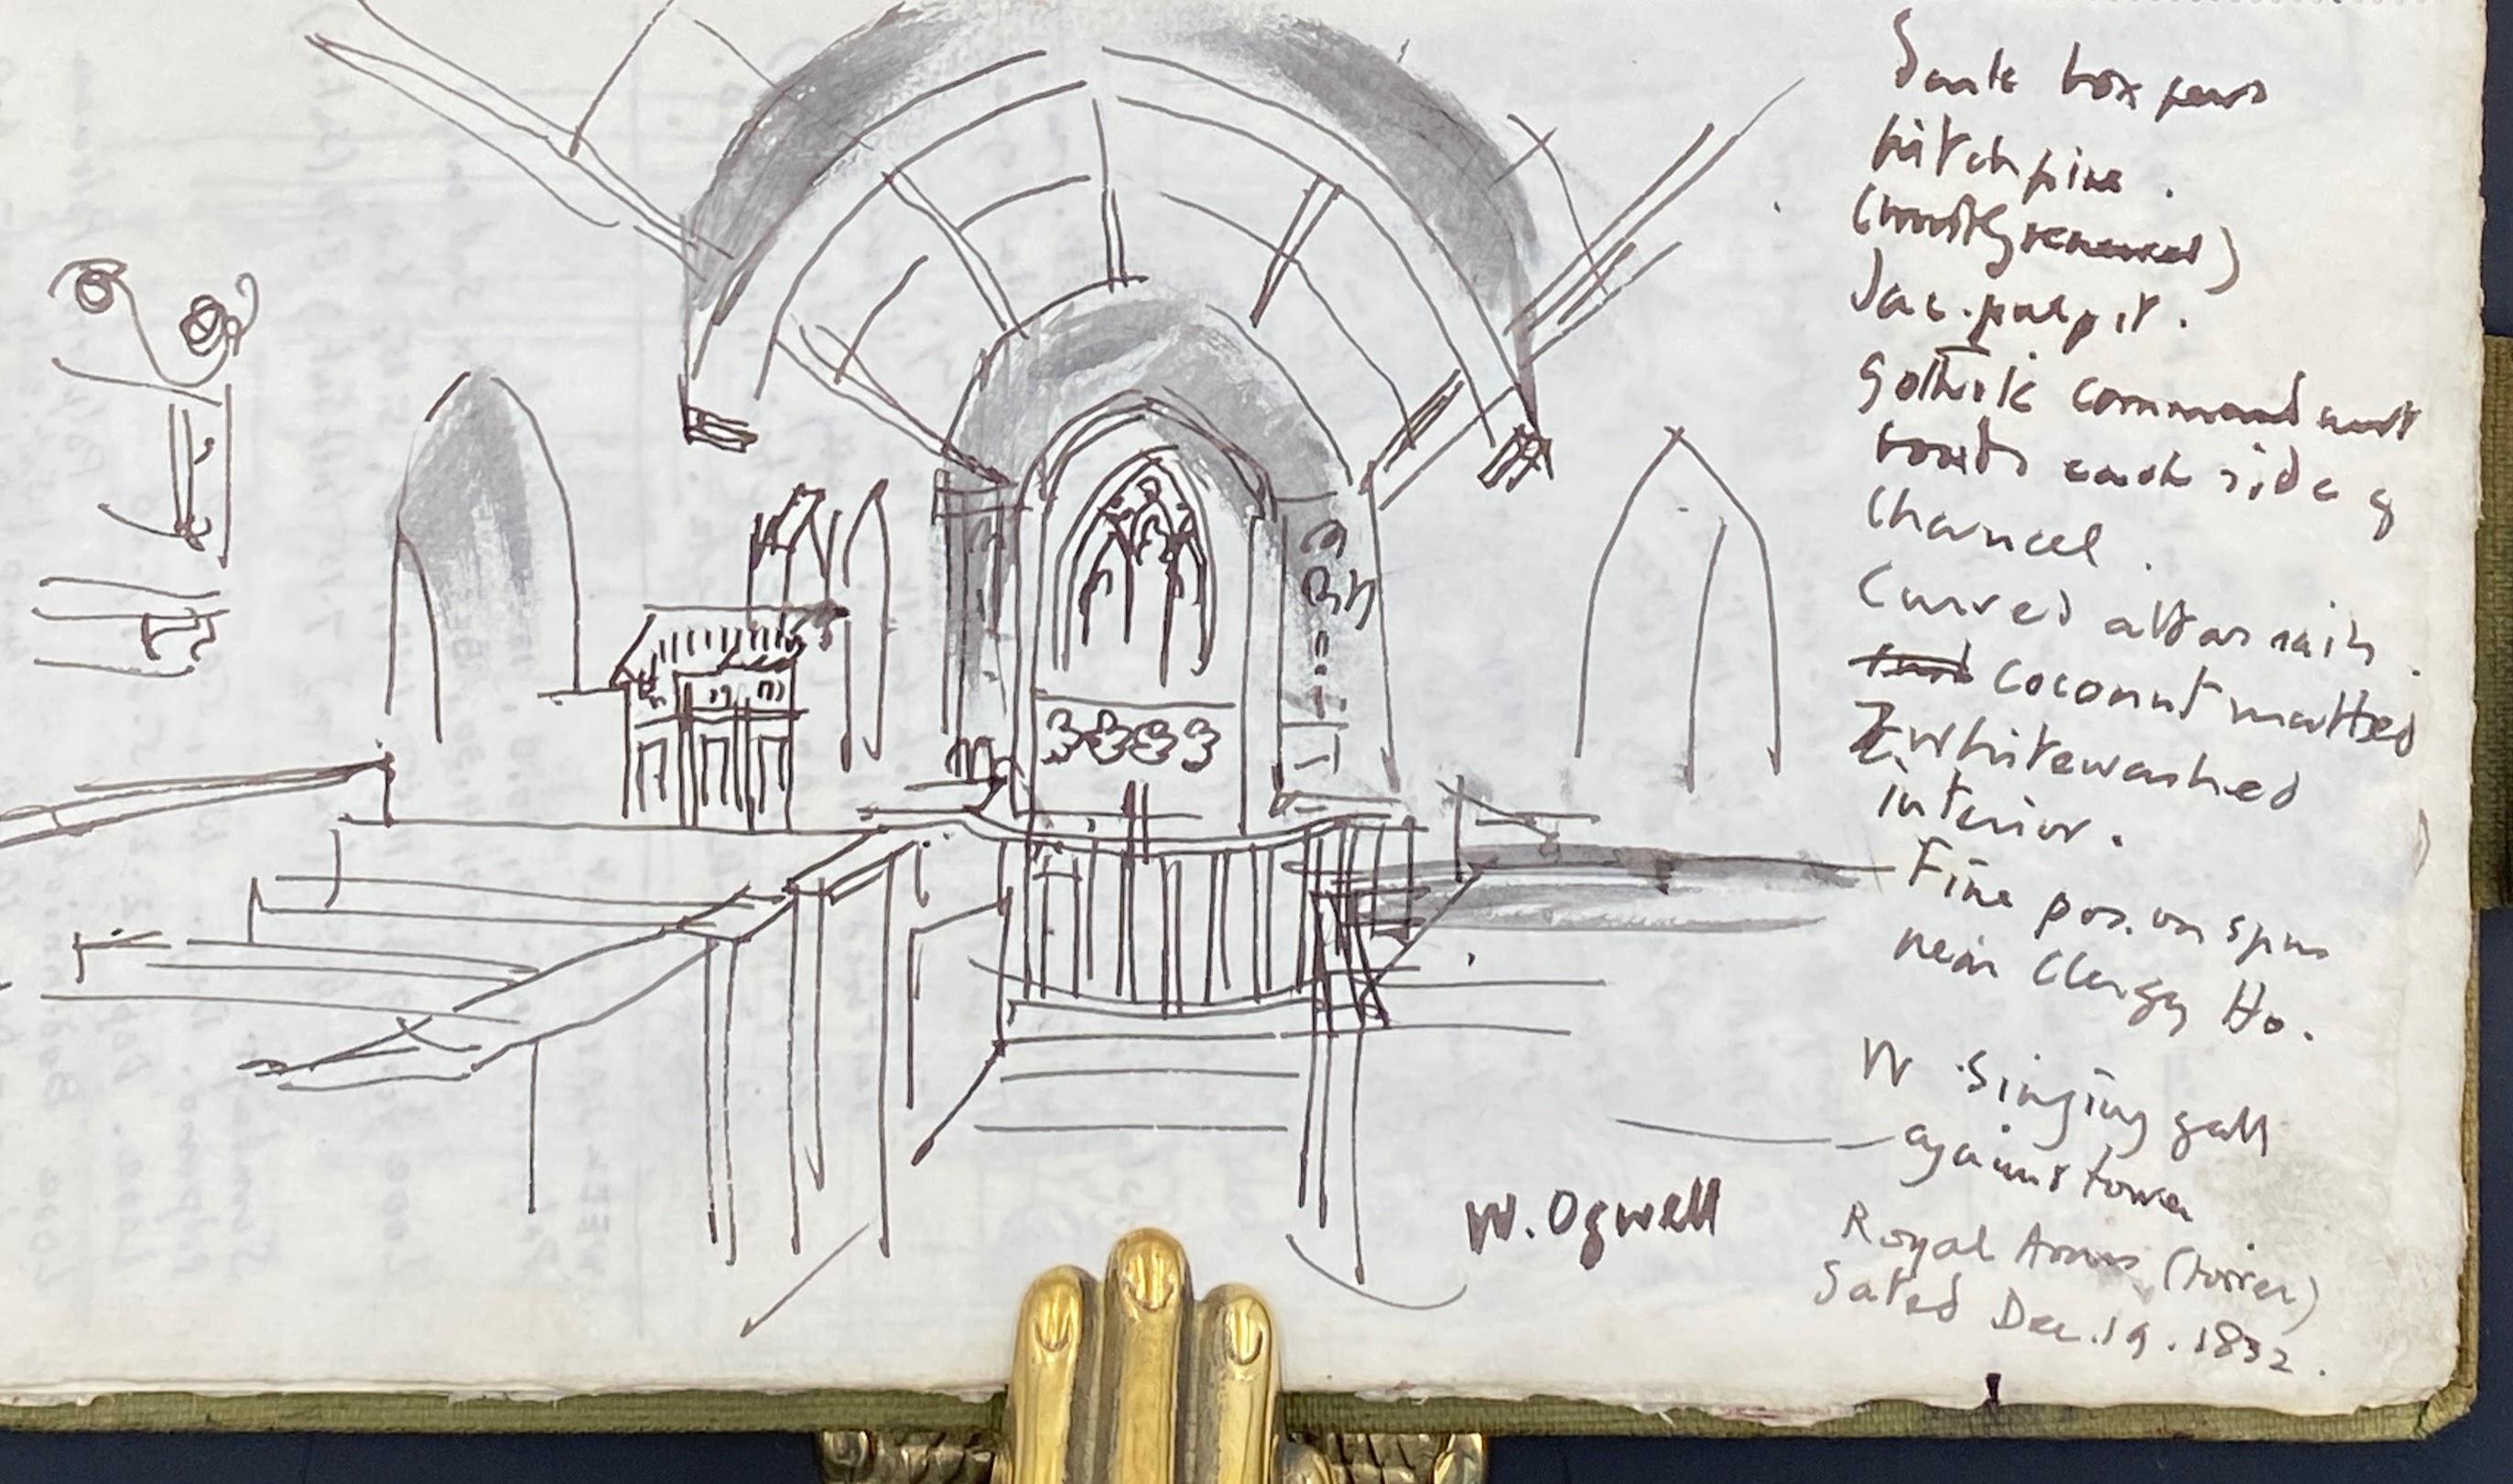 box pews
pitch pine.
(mostly removed)
Jac. pulpit.
Gothick commandment
boards each side of
Chancel.
Curved altar rails.
coconut matted
Whitewashed
interior.
Fine pos. on spur
near Clergy Ho.
W. Singing gall
against tower
Royal Arms
Dated Dec. 19. 1832.
W. Ogwell